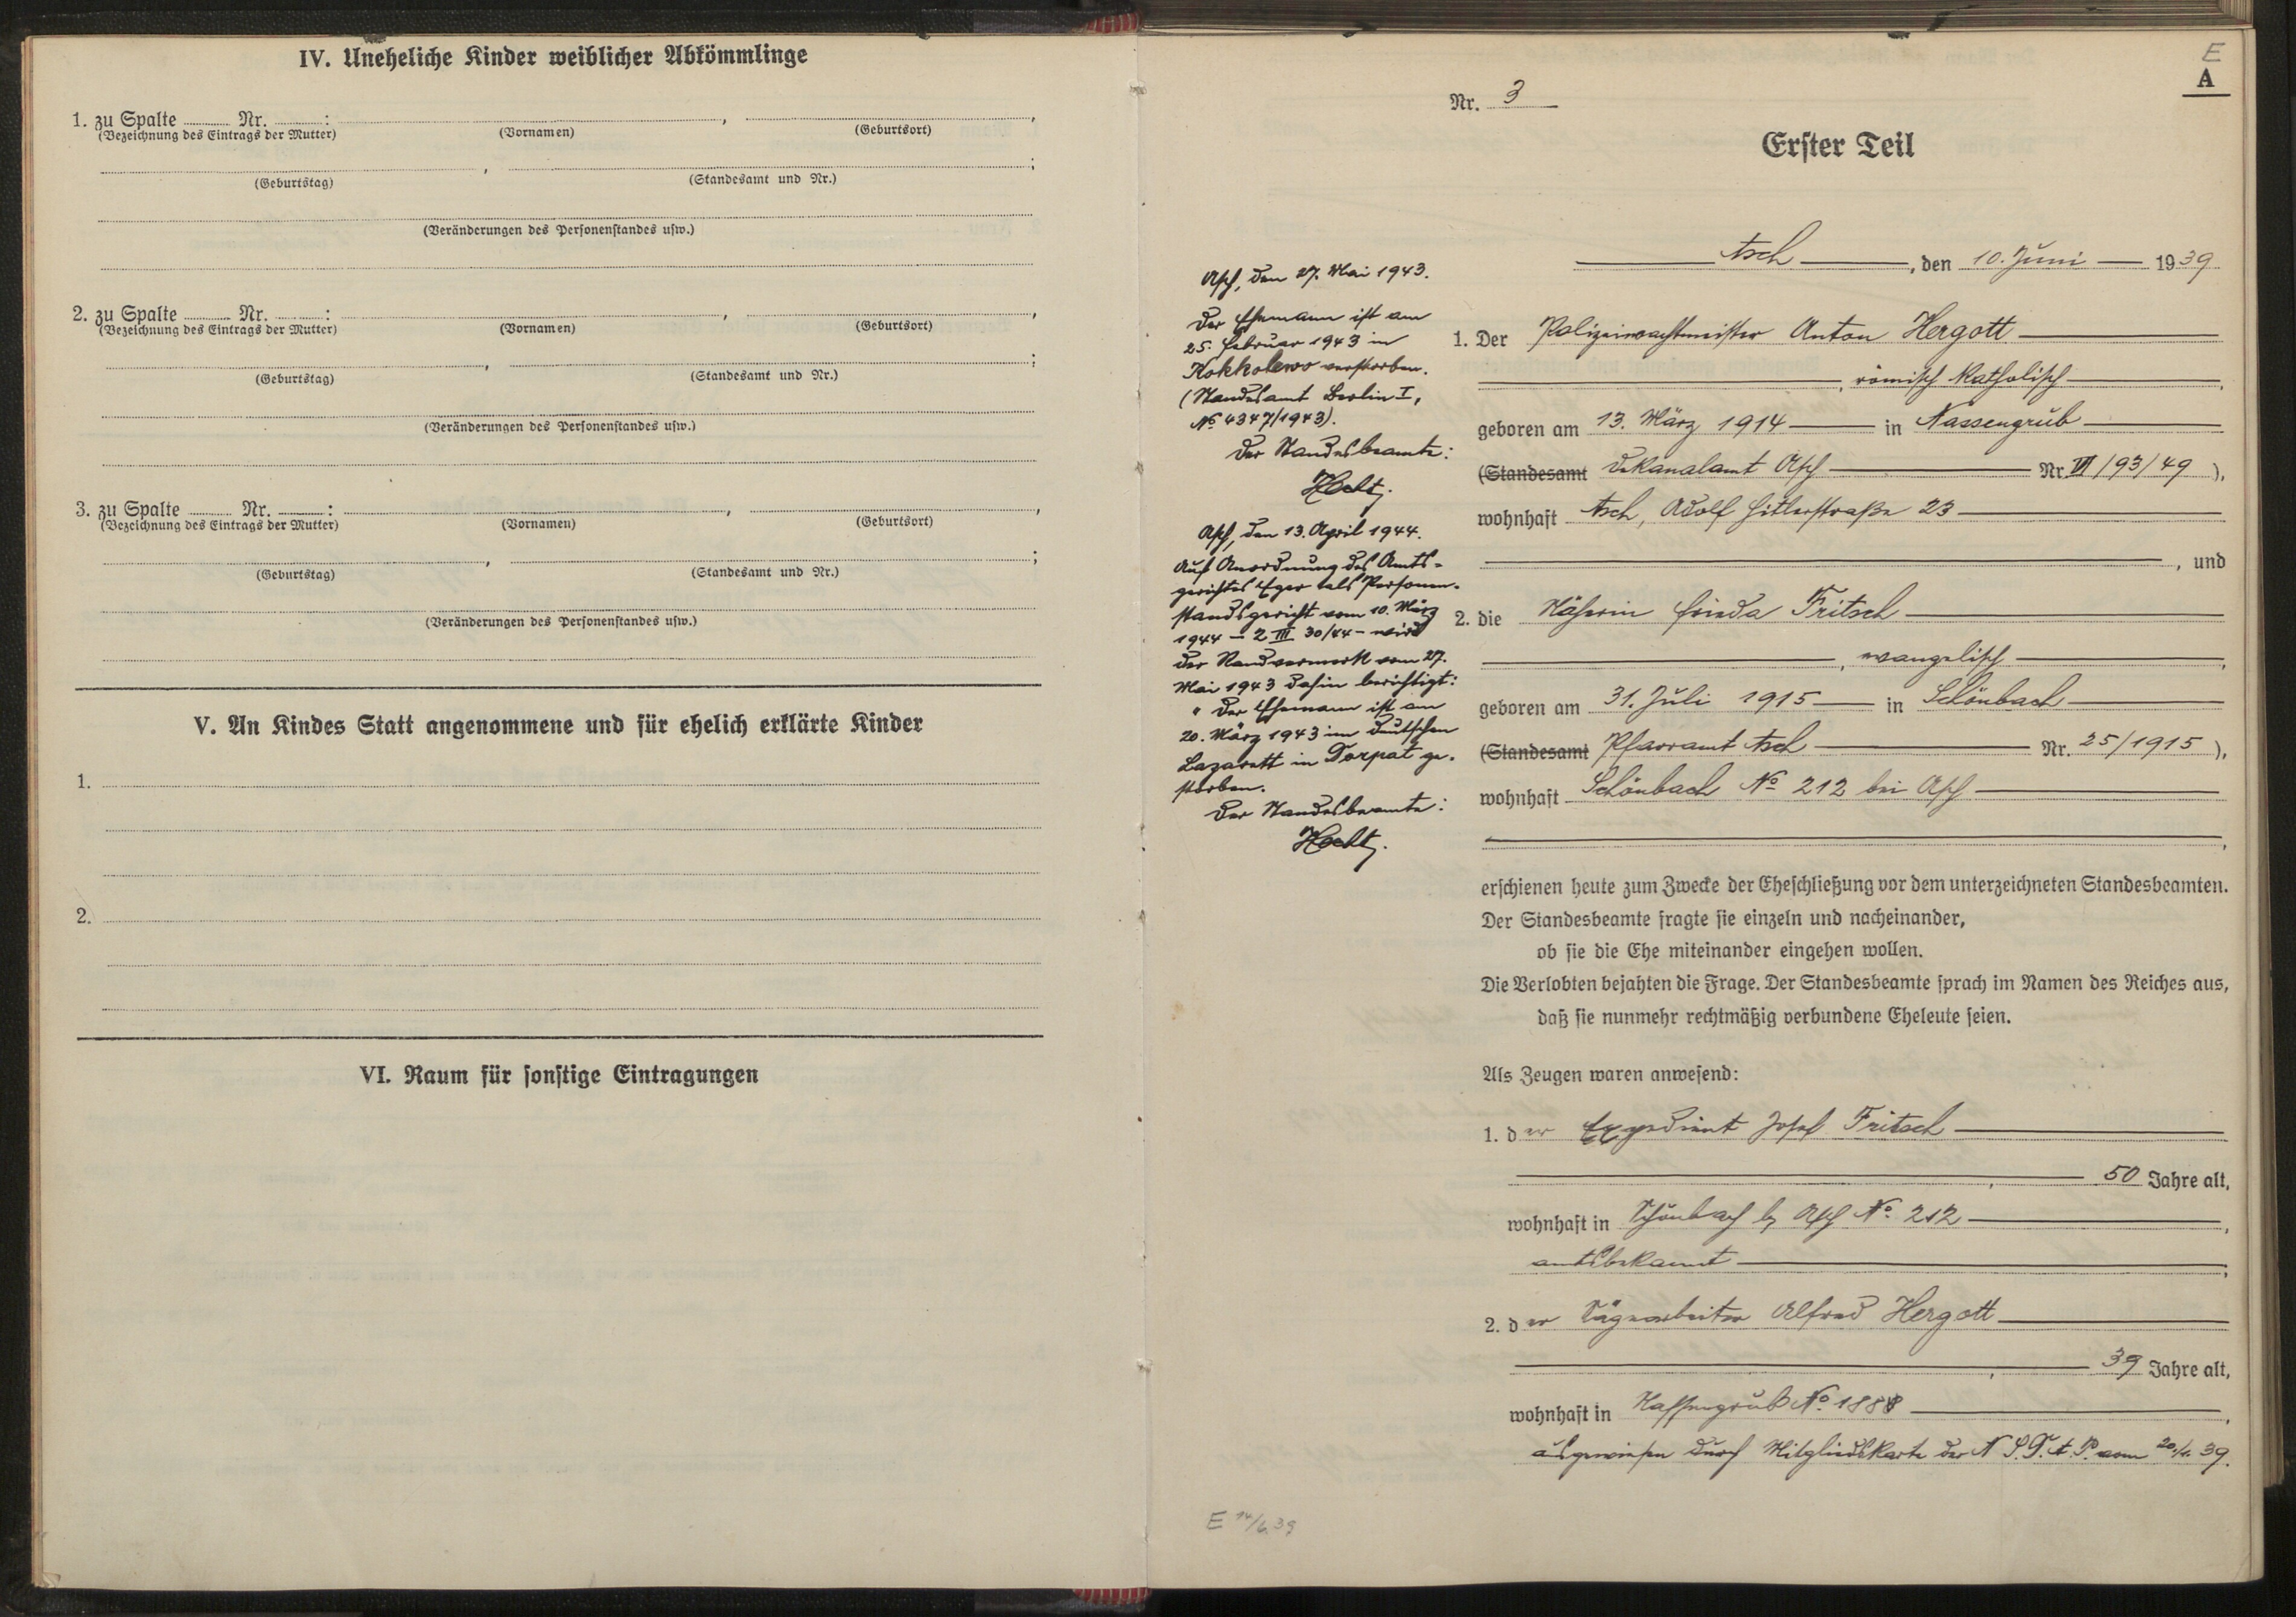 IV. Uneheliche Kinder weiblicher Abkömmlinge
1. zu Spalte Nr. :
(Bezeichnung des Eintrags der Mutter) (Vornamen) (Geburtsort)
(Geburtstag) (Standesamt und Nr.)
(Veränderungen des Personenstandes usw.)
2. zu Spalte Nr. :
(Bezeichnung des Eintrags der Mutter) (Vornamen) (Geburtsort)
(Geburtstag) (Standesamt und Nr.)
(Veränderungen des Personenstandes usw.)
3. zu Spalte Nr. :
(Bezeichnung des Eintrags der Mutter) (Vornamen) (Geburtsort)
(Geburtstag) (Standesamt und Nr.)
(Veränderungen des Personenstandes usw.)
V. An Kindes Statt angenommene und für ehelich erklärte Kinder
1.
2.
VI. Raum für sonstige Eintragungen
E
A
Nr. 3
Erster Teil
Asch, den 10. Juni 1939
Asch, den 27. Mai 1943.
Der Ehemann ist am
25. Februar 1943 in
Kokkolewo verstorben.
(Standesamt Berlin I,
No 4347/1943).
Der Standesbeamte:
Asch, den 13. April 1944.
Auf Anordnung des Amts-
gerichtes Eger als Personen-
standsgericht vom 10. März
1944 – 2 III 30/44 – wird
der Randvermerk vom 27.
Mai 1943 dahin berichtigt:
" Der Ehemann ist am
20. März 1943 im Deutschen
Lazarett in Dorpat ge-
storben.
Der Standesbeamte:
1. Der Polizeiwachtmeister Anton Hergott
, römisch katholisch,
geboren am 13. März 1914 in Nassengrub
(Standesamt Dekanalamt Asch Nr. VI/93/49 ),
wohnhaft Asch, Adolf Hitlerstraße 23
, und
2. die Näherin Frieda Fritsch
, evangelisch,
geboren am 31. Juli 1915 in Schönbach
(Standesamt Pfarramt Asch Nr. 25/1915 ),
wohnhaft Schönbach No 212 bei Asch
,
erschienen heute zum Zwecke der Eheschließung vor dem unterzeichneten Standesbeamten.
Der Standesbeamte fragte sie einzeln und nacheinander,
ob sie die Ehe miteinander eingehen wollen.
Die Verlobten bejahten die Frage. Der Standesbeamte sprach im Namen des Reiches aus,
daß sie nunmehr rechtmäßig verbundene Eheleute seien.
Als Zeugen waren anwesend:
1. der Expedient Josef Fritsch
, 50 Jahre alt,
wohnhaft in Schönbach b. Asch No 212,
amtsbekannt;
2. der Sägearbeiter Alfred Hergott
, 39 Jahre alt,
wohnhaft in Nassengrub No,
ausgewiesen durch Mitgliedskarte der N.S.D.A.P. vom 39.
E 14/6.39